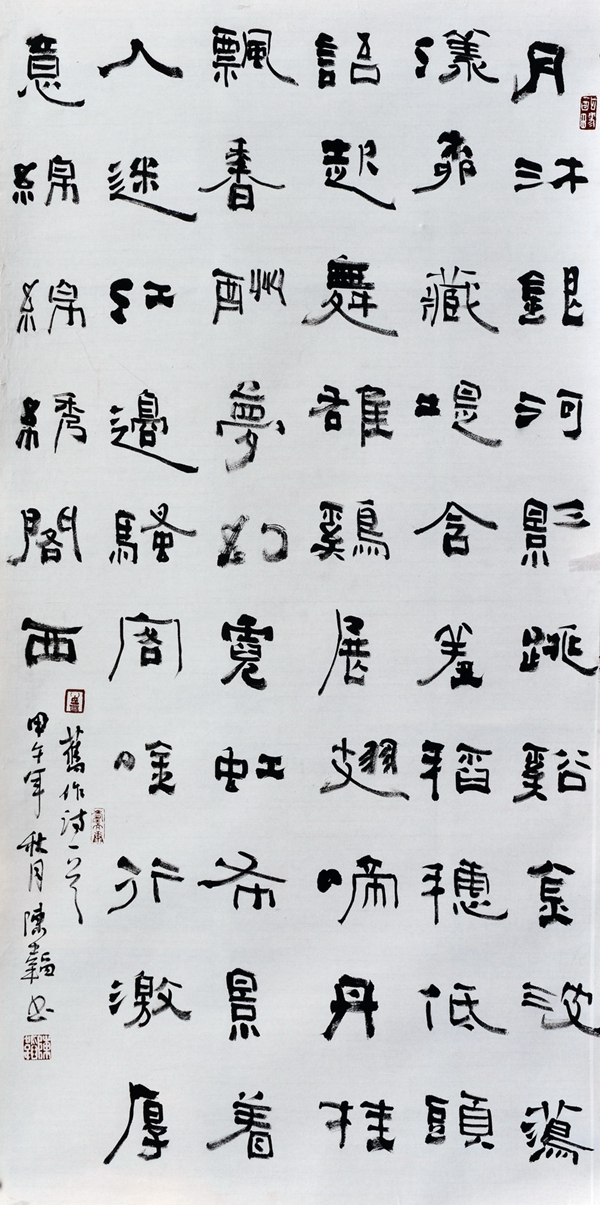 月沐銀河影跳谿金波蕩
漾藏堤含羞稻穗低頭
語起舞雄鷄展翅啼丹桂
飄香酬夢幻霓虹布景着
人迷紅邊騷客唫行激厚
意綿綿綉閣西
舊作詩一首
甲午年秋月陳書